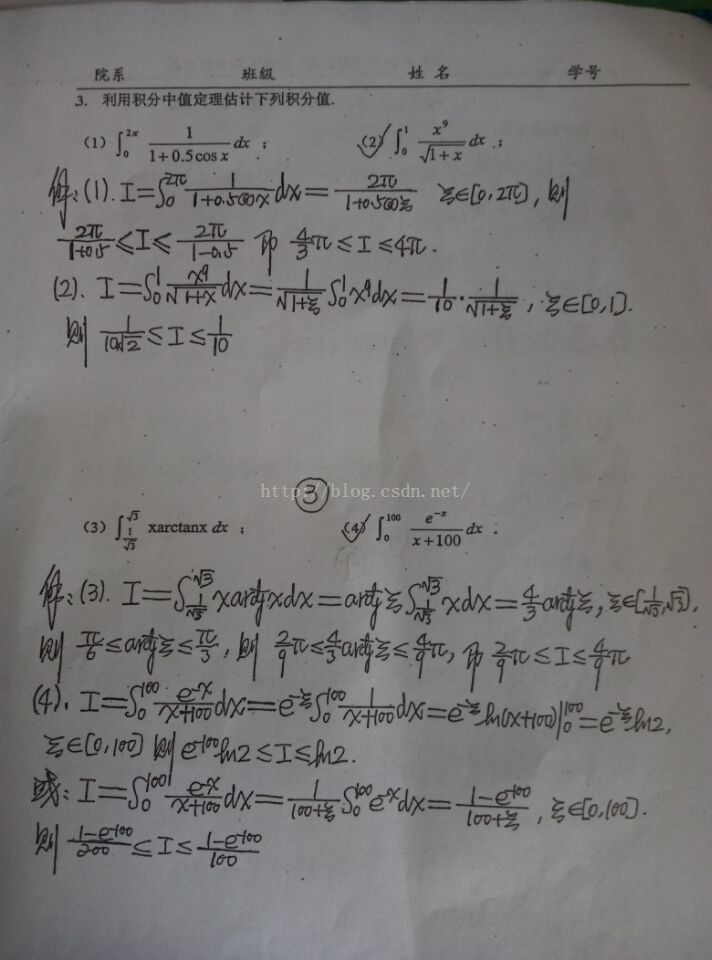 院系 班级 姓名 学号
3. 利用积分中值定理估计下列积分值.
(1) ∫₀^{2π} 1/(1+0.5cos x) dx ; (2) ∫₀^1 x⁹/√(1+x) dx ;
解:(1). I=∫₀^{2π} 1/(1+0.5cosx) dx = 2π/(1+0.5cosξ) ξ∈[0,2π], 则
2π/(1+0.5) ≤ I ≤ 2π/(1-0.5) 即 4/3 π ≤ I ≤ 4π.
(2). I=∫₀^1 x⁹/√(1+x) dx = 1/√(1+ξ) ∫₀^1 x⁹dx = 1/10 · 1/√(1+ξ), ξ∈[0,1].
则 1/(10√2) ≤ I ≤ 1/10
③
http://blog.csdn.net/
(3) ∫_{1/√3}^{√3} xarctanx dx ; (4) ∫₀^{100} e^{-x}/(x+100) dx .
解:(3). I=∫_{1/√3}^{√3} xarctgxdx = arctgξ ∫_{1/√3}^{√3} xdx = 4/3 arctgξ, ξ∈[1/√3,√3],
则 π/6 ≤ arctgξ ≤ π/3, 则 2/9 π ≤ 4/3 arctgξ ≤ 4/9 π, 即 2/9 π ≤ I ≤ 4/9 π
(4). I=∫₀^{100} e^{-x}/(x+100) dx = e^{-ξ} ∫₀^{100} 1/(x+100) dx = e^{-ξ} ln(x+100)|₀^{100} = e^{-ξ} ln2,
ξ∈[0,100] 则 e^{-100} ln2 ≤ I ≤ ln2.
或: I=∫₀^{100} e^{-x}/(x+100) dx = 1/(100+ξ) ∫₀^{100} e^{-x}dx = (1-e^{-100})/(100+ξ), ξ∈[0,100].
则 (1-e^{-100})/200 ≤ I ≤ (1-e^{-100})/100